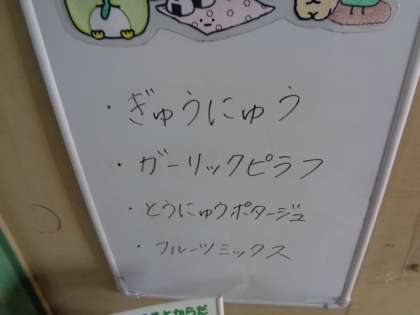 ・ぎゅうにゅう
・ガーリックピラフ
・とうにゅうポタージュ
・フルーツミックス
とからだ